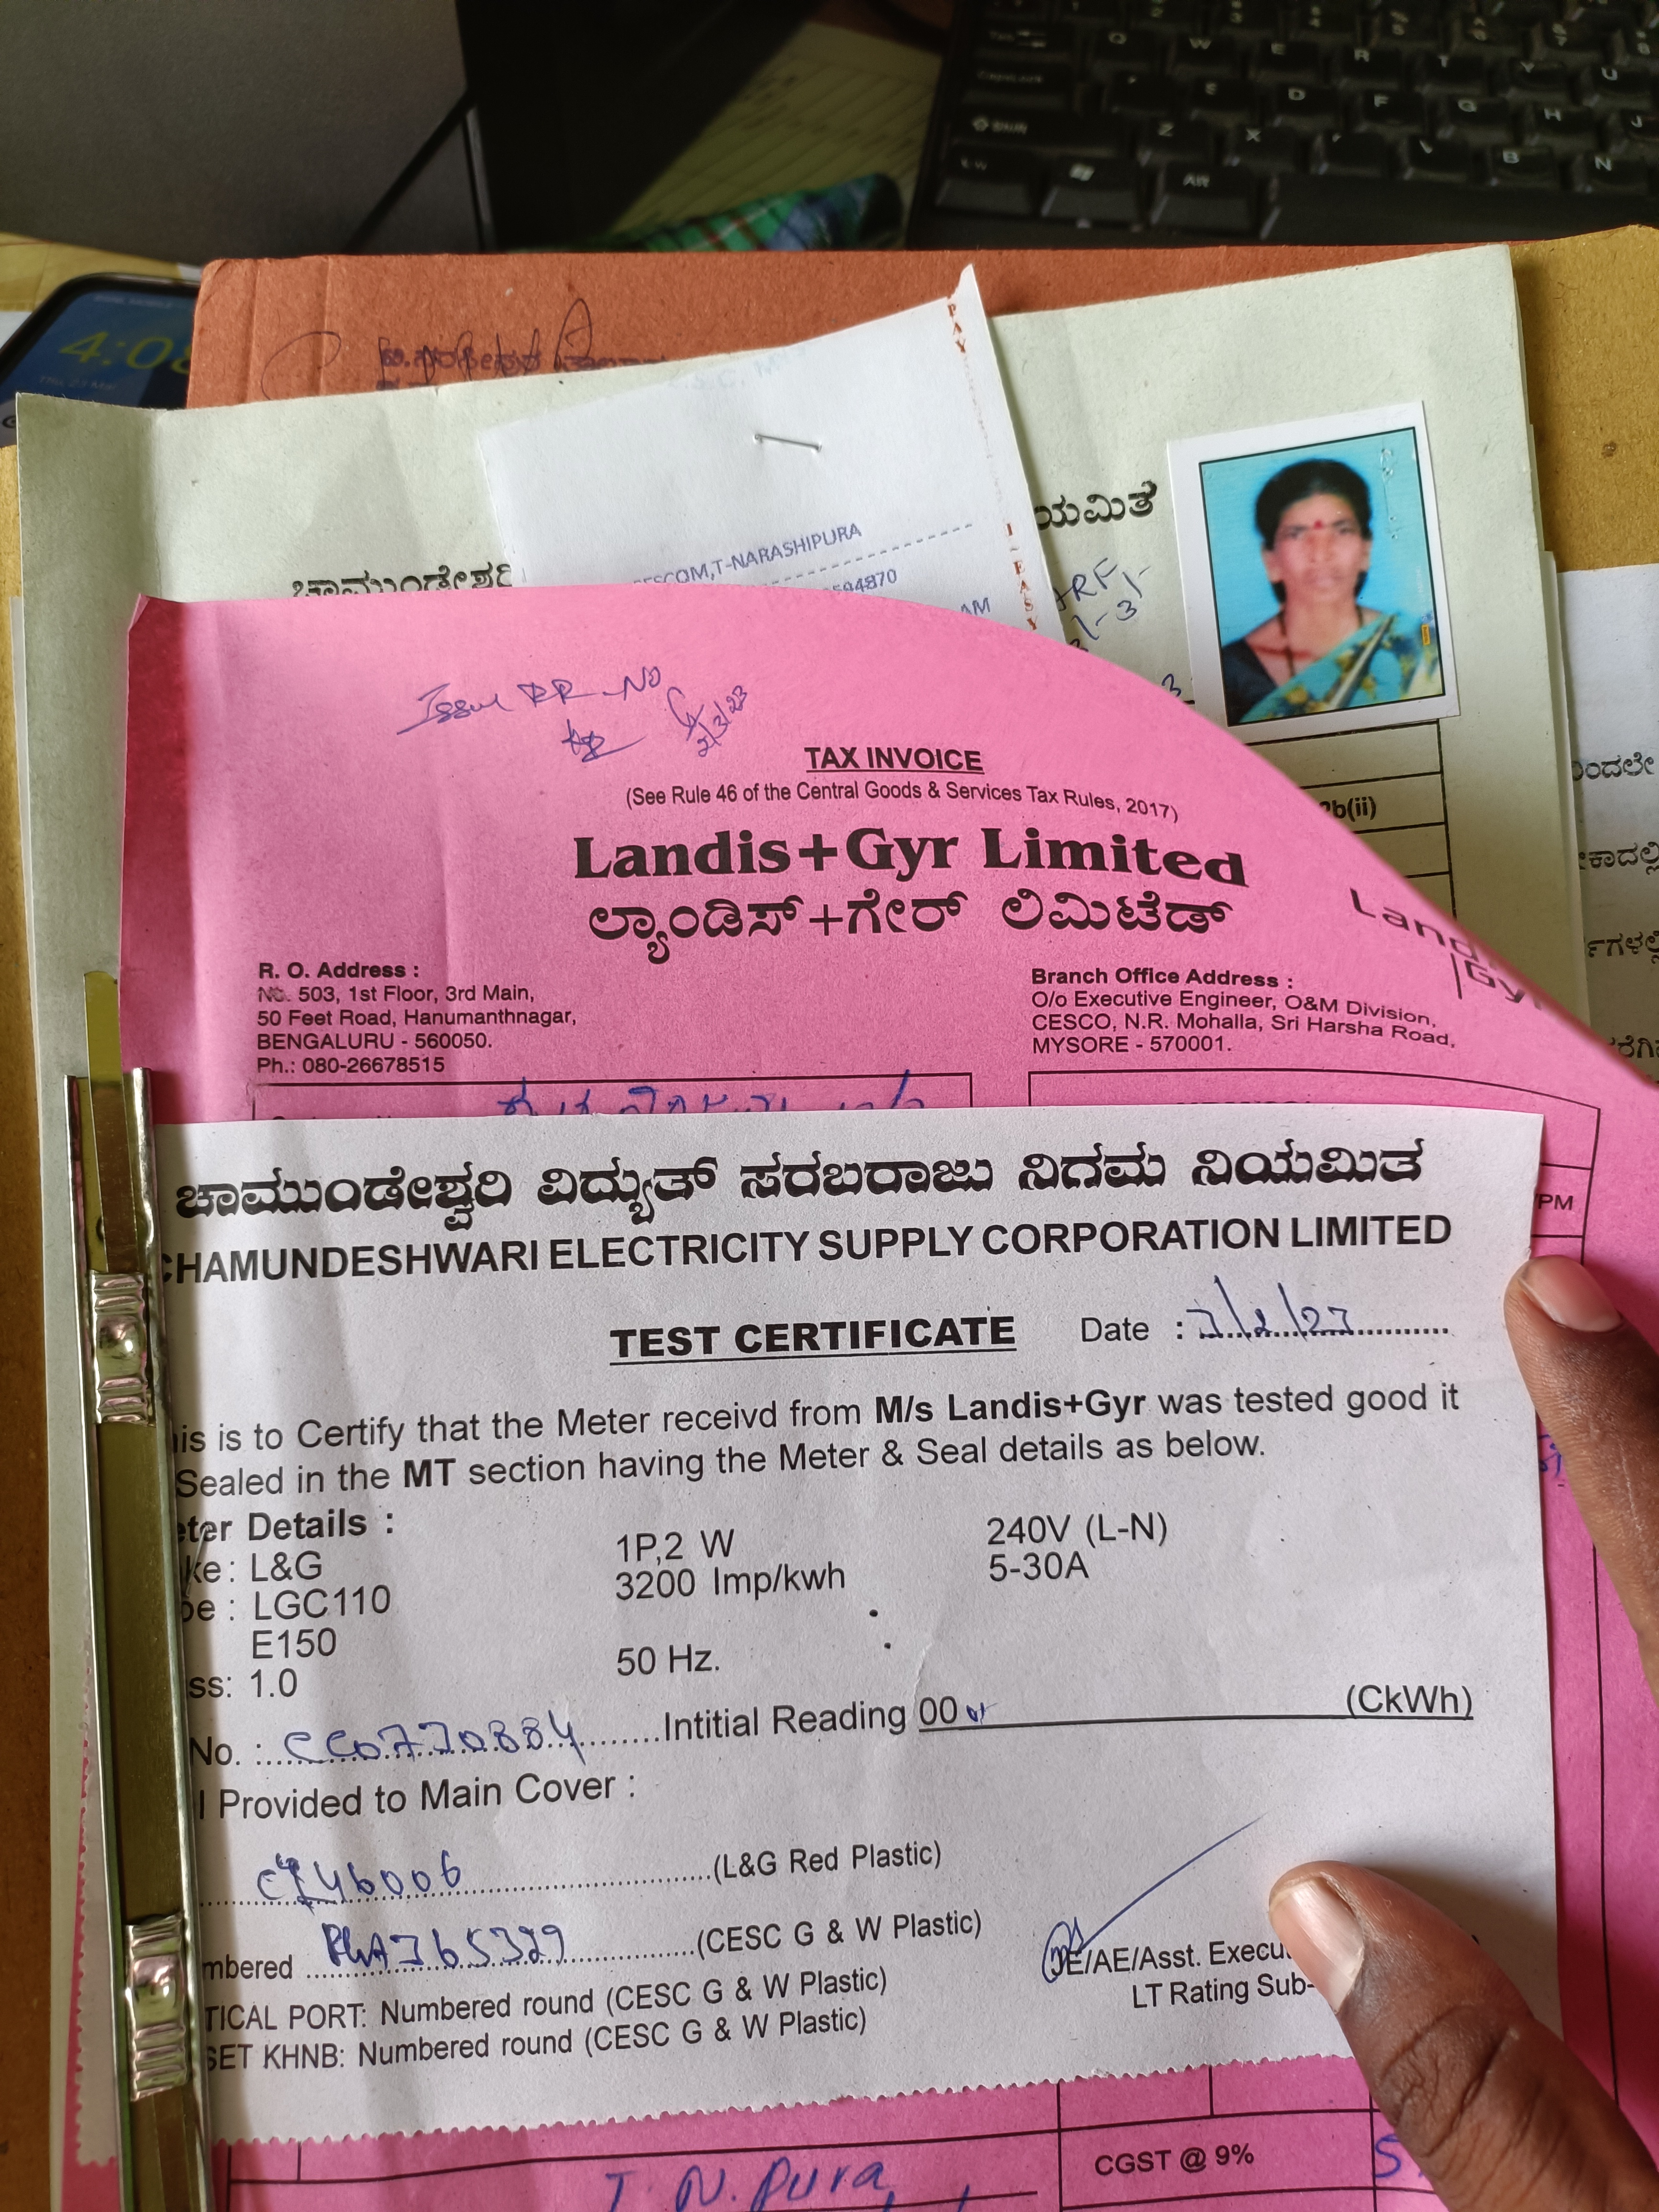 4:08
PAY
I-EASY
ಯಮಿತ
ಚಾಮುಂಡೇಶ್ವರಿ
CESCOM,T-NARASHIPURA
594870
AM
Issue RR No
2/3/23
TAX INVOICE
(See Rule 46 of the Central Goods & Services Tax Rules, 2017)
2b(ii)
Landis+Gyr Limited
ಲ್ಯಾಂಡಿಸ್+ಗೇರ್ ಲಿಮಿಟೆಡ್
R. O. Address :
No. 503, 1st Floor, 3rd Main,
50 Feet Road, Hanumanthnagar,
BENGALURU - 560050.
Ph.: 080-26678515
Branch Office Address :
O/o Executive Engineer, O&M Division,
CESCO, N.R. Mohalla, Sri Harsha Road,
MYSORE - 570001.
ಚಾಮುಂಡೇಶ್ವರಿ ವಿದ್ಯುತ್ ಸರಬರಾಜು ನಿಗಮ ನಿಯಮಿತ
CHAMUNDESHWARI ELECTRICITY SUPPLY CORPORATION LIMITED
TEST CERTIFICATE Date :
his is to Certify that the Meter receivd from M/s Landis+Gyr was tested good it
Sealed in the MT section having the Meter & Seal details as below.
eter Details :
ke : L&G 1P,2 W 240V (L-N)
pe : LGC110 3200 Imp/kwh 5-30A
E150
ss: 1.0 50 Hz.
No. : CC0770884 Intitial Reading 00 (CkWh)
l Provided to Main Cover :
(L&G Red Plastic)
mbered (CESC G & W Plastic)
TICAL PORT: Numbered round (CESC G & W Plastic)
SET KHNB: Numbered round (CESC G & W Plastic)
JE/AE/Asst. Execu
LT Rating Sub-
CGST @ 9%
T. N. Pura,